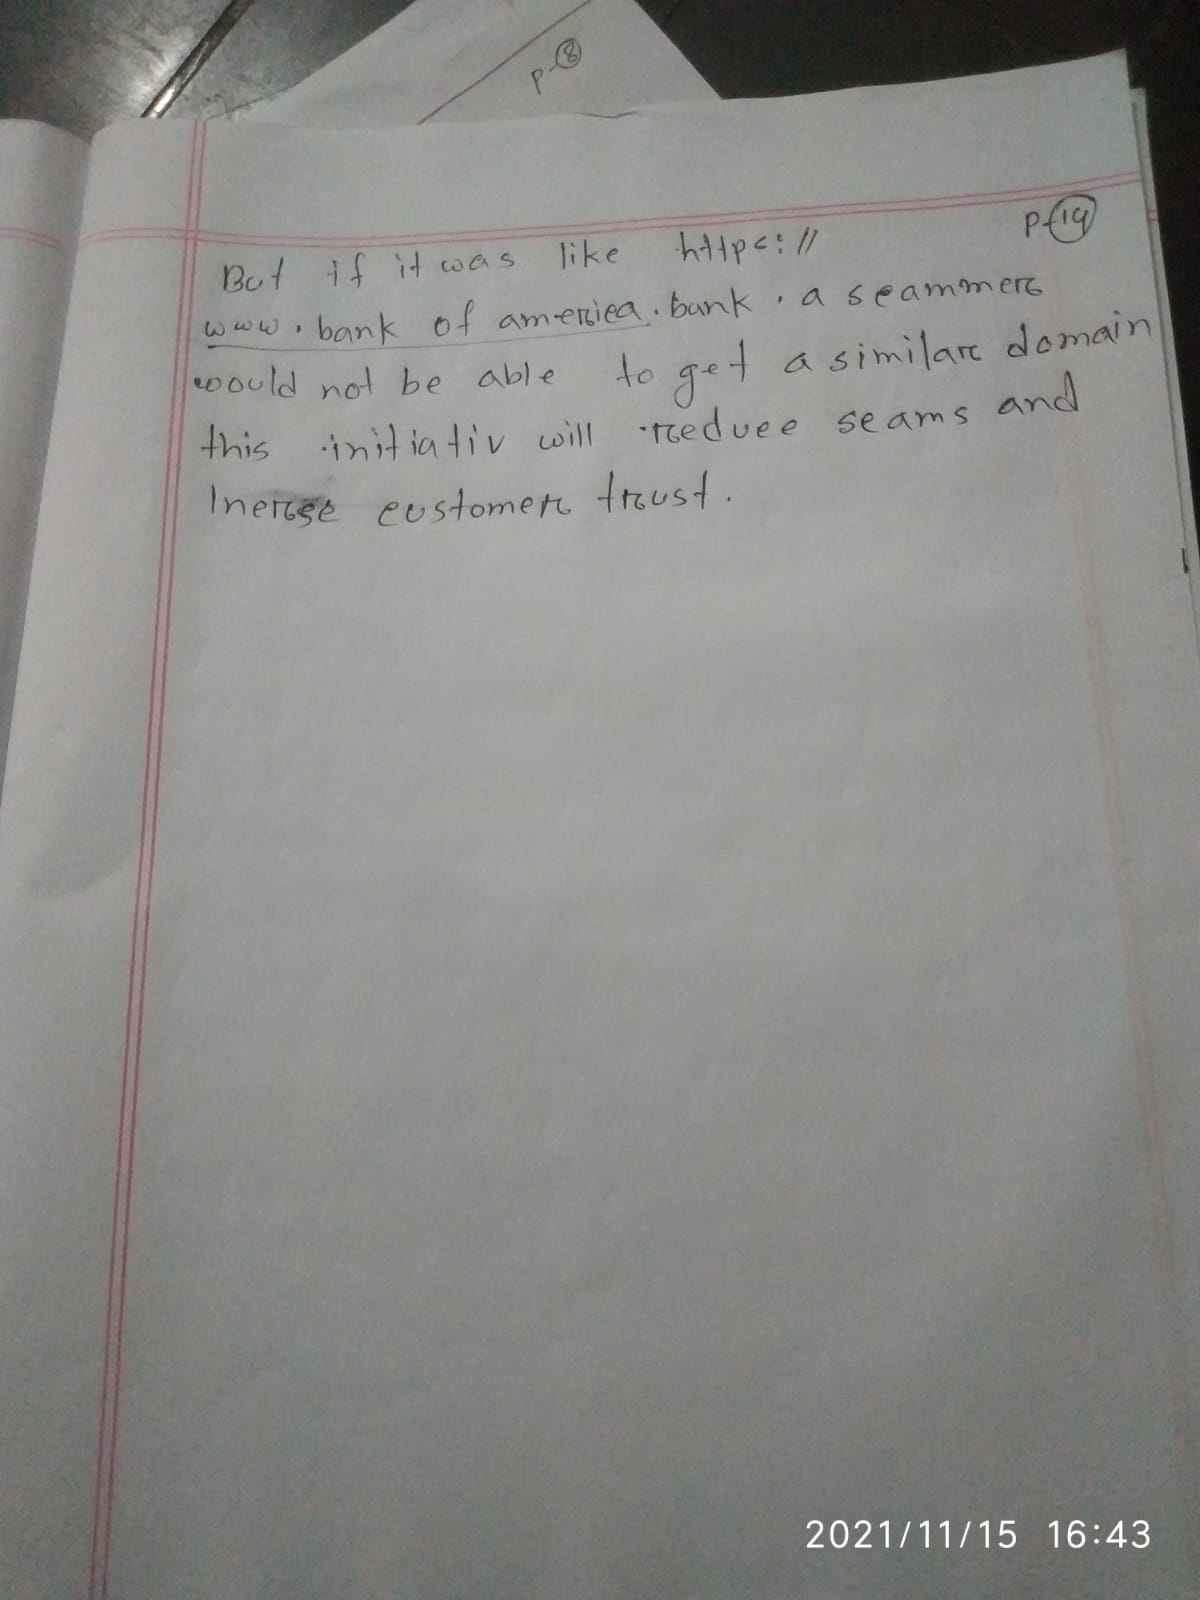 P-8
P-19
But if it was like https://
www.bank of america.bank. a scammer
would not be able to get a similar domain
this initiativ will reduce scams and
Incrse customer trust.
2021/11/15 16:43